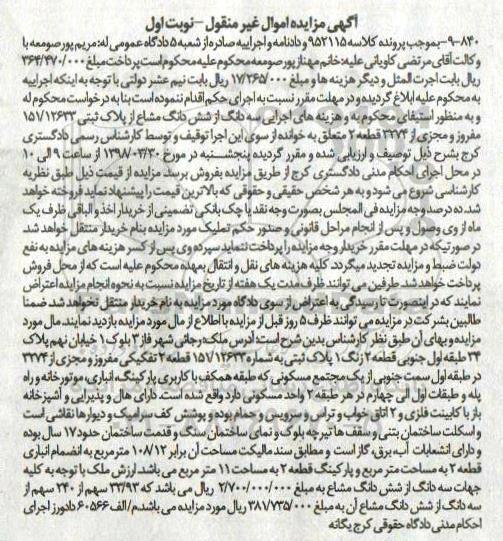 آگهی مزایده اموال غیر منقول - نوبت اول
۹-۸۴۰- بموجب پرونده کلاسه ۹۵۲۱۱۵ و دادنامه و اجراییه صادره از شعبه ۵ دادگاه عمومی له: مریم پور صومعه با
وکالت آقای مرتضی کاویانی علیه: خانم مهناز پور صومعه محکوم علیه محکوم است پرداخت مبلغ ۳۶۴/۴۷۰/۰۰۰
ریال بابت اجرت المثل و دیگر هزینه ها و مبلغ ۱۷/۲۶۵/۰۰۰ ریال بابت نیم عشر دولتی با توجه به اینکه اجراییه
به محکوم علیه ابلاغ گردیده و در مهلت مقرر نسبت به اجرای حکم اقدام ننموده است بنا به درخواست محکوم له
و به منظور استیفای محکوم به و هزینه های اجرایی سه دانگ از شش دانگ مشاع از پلاک ثبتی ۱۵۱/۱۲۶۳۳
مفروز و مجزی از ۳۲۷۴ قطعه ۲ متعلق به خوانده از سوی این اجرا توقیف و توسط کارشناس رسمی دادگستری
کرج بشرح ذیل توصیف و ارزیابی شده و مقرر گردیده پنجشنبه در مورخ ۱۳۹۸/۰۳/۳۰ از ساعت ۹ الی ۱۰
در محل اجرای احکام مدنی دادگستری کرج از طریق مزایده بفروش برسد. مزایده از قیمت ذیل طبق نظریه
کارشناسی شروع می شود و به هر شخص حقیقی و حقوقی که بالاترین قیمت را پیشنهاد نماید فروخته خواهد
شد. ده درصد وجه مزایده فی المجلس بصورت وجه نقد یا چک بانکی تضمینی از خریدار اخذ و الباقی ظرف یک
ماه از وی وصول و پس از انجام مراحل قانونی و صدور حکم تملیک مورد مزایده بنام خریدار منتقل خواهد شد
در صورتیکه در مهلت مقرر خریدار وجه مزایده را پرداخت ننماید سپرده وی پس از کسر هزینه های مزایده به نفع
دولت ضبط و مزایده تجدید میگردد. کلیه هزینه های نقل و انتقال بعهده محکوم علیه است که از محل فروش
پرداخت خواهد شد. طرفین می توانند ظرف مدت یک هفته از تاریخ مزایده نسبت به نحوه انجام مزایده اعتراض
نمایند که در اینصورت تا رسیدگی به اعتراض از سوی دادگاه مورد مزایده به نام خریدار منتقل نخواهد شد. ضمنا
طالبین بشرکت در مزایده می توانند ظرف ۵ روز قبل از مزایده با اطلاع از مال مورد مزایده بازدید نمایند. مال مورد
مزایده و بهای آن طبق نظر کارشناس بدین شرح است: آدرس ملک: رجائی شهر فاز ۳ بلوک ۱ خیابان نهم پلاک
۳۴ طبقه اول جنوبی قطعه ۲ زنگ ۱ پلاک ثبتی به شماره ۱۵۱/۱۲۶۳۳ قطعه ۲ تفکیکی مفروز و مجزی از ۳۲۷۴
در طبقه اول سمت جنوبی از یک مجتمع مسکونی که طبقه همکف با کاربری پارکینگ، انباری، موتورخانه و راه
پله و طبقات اول الی چهارم در هر طبقه ۲ واحد مسکونی دارد واقع شده است. دارای هال و پذیرایی و آشپزخانه
باز با کابینت فلزی و ۲ اتاق خواب و تراس و سرویس و حمام بوده و پوشش کف سرامیک و دیوارها نقاشی است
و اسکلت ساختمان بتنی و سقف ها تیرچه بلوک و نمای ساختمان سنگ و قدمت ساختمان حدود ۱۷ سال بوده
و دارای انشعابات آب، برق، گاز است و مطابق سند مالکیت مساحت آن برابر ۱۰۸/۱۲ مترمربع به انضمام انباری
قطعه ۲ به مساحت متر مربع و پارکینگ قطعه ۲ به مساحت ۱۱ متر مربع می باشد. ارزش ملک با توجه به کلیه
جهات سه دانگ از شش دانگ مشاع به مبلغ ۲/۷۰۰/۰۰۰/۰۰۰ ریال می باشد که ۳۳/۹۳ سهم از ۲۴۰ سهم از
سه دانگ از شش دانگ مشاع آن به مبلغ ۳۸۱/۷۳۵/۰۰۰ ریال مورد مزایده می باشد./ الف ۶۰۵۶۶ دادورز اجرای
احکام مدنی دادگاه حقوقی کرج یگانه